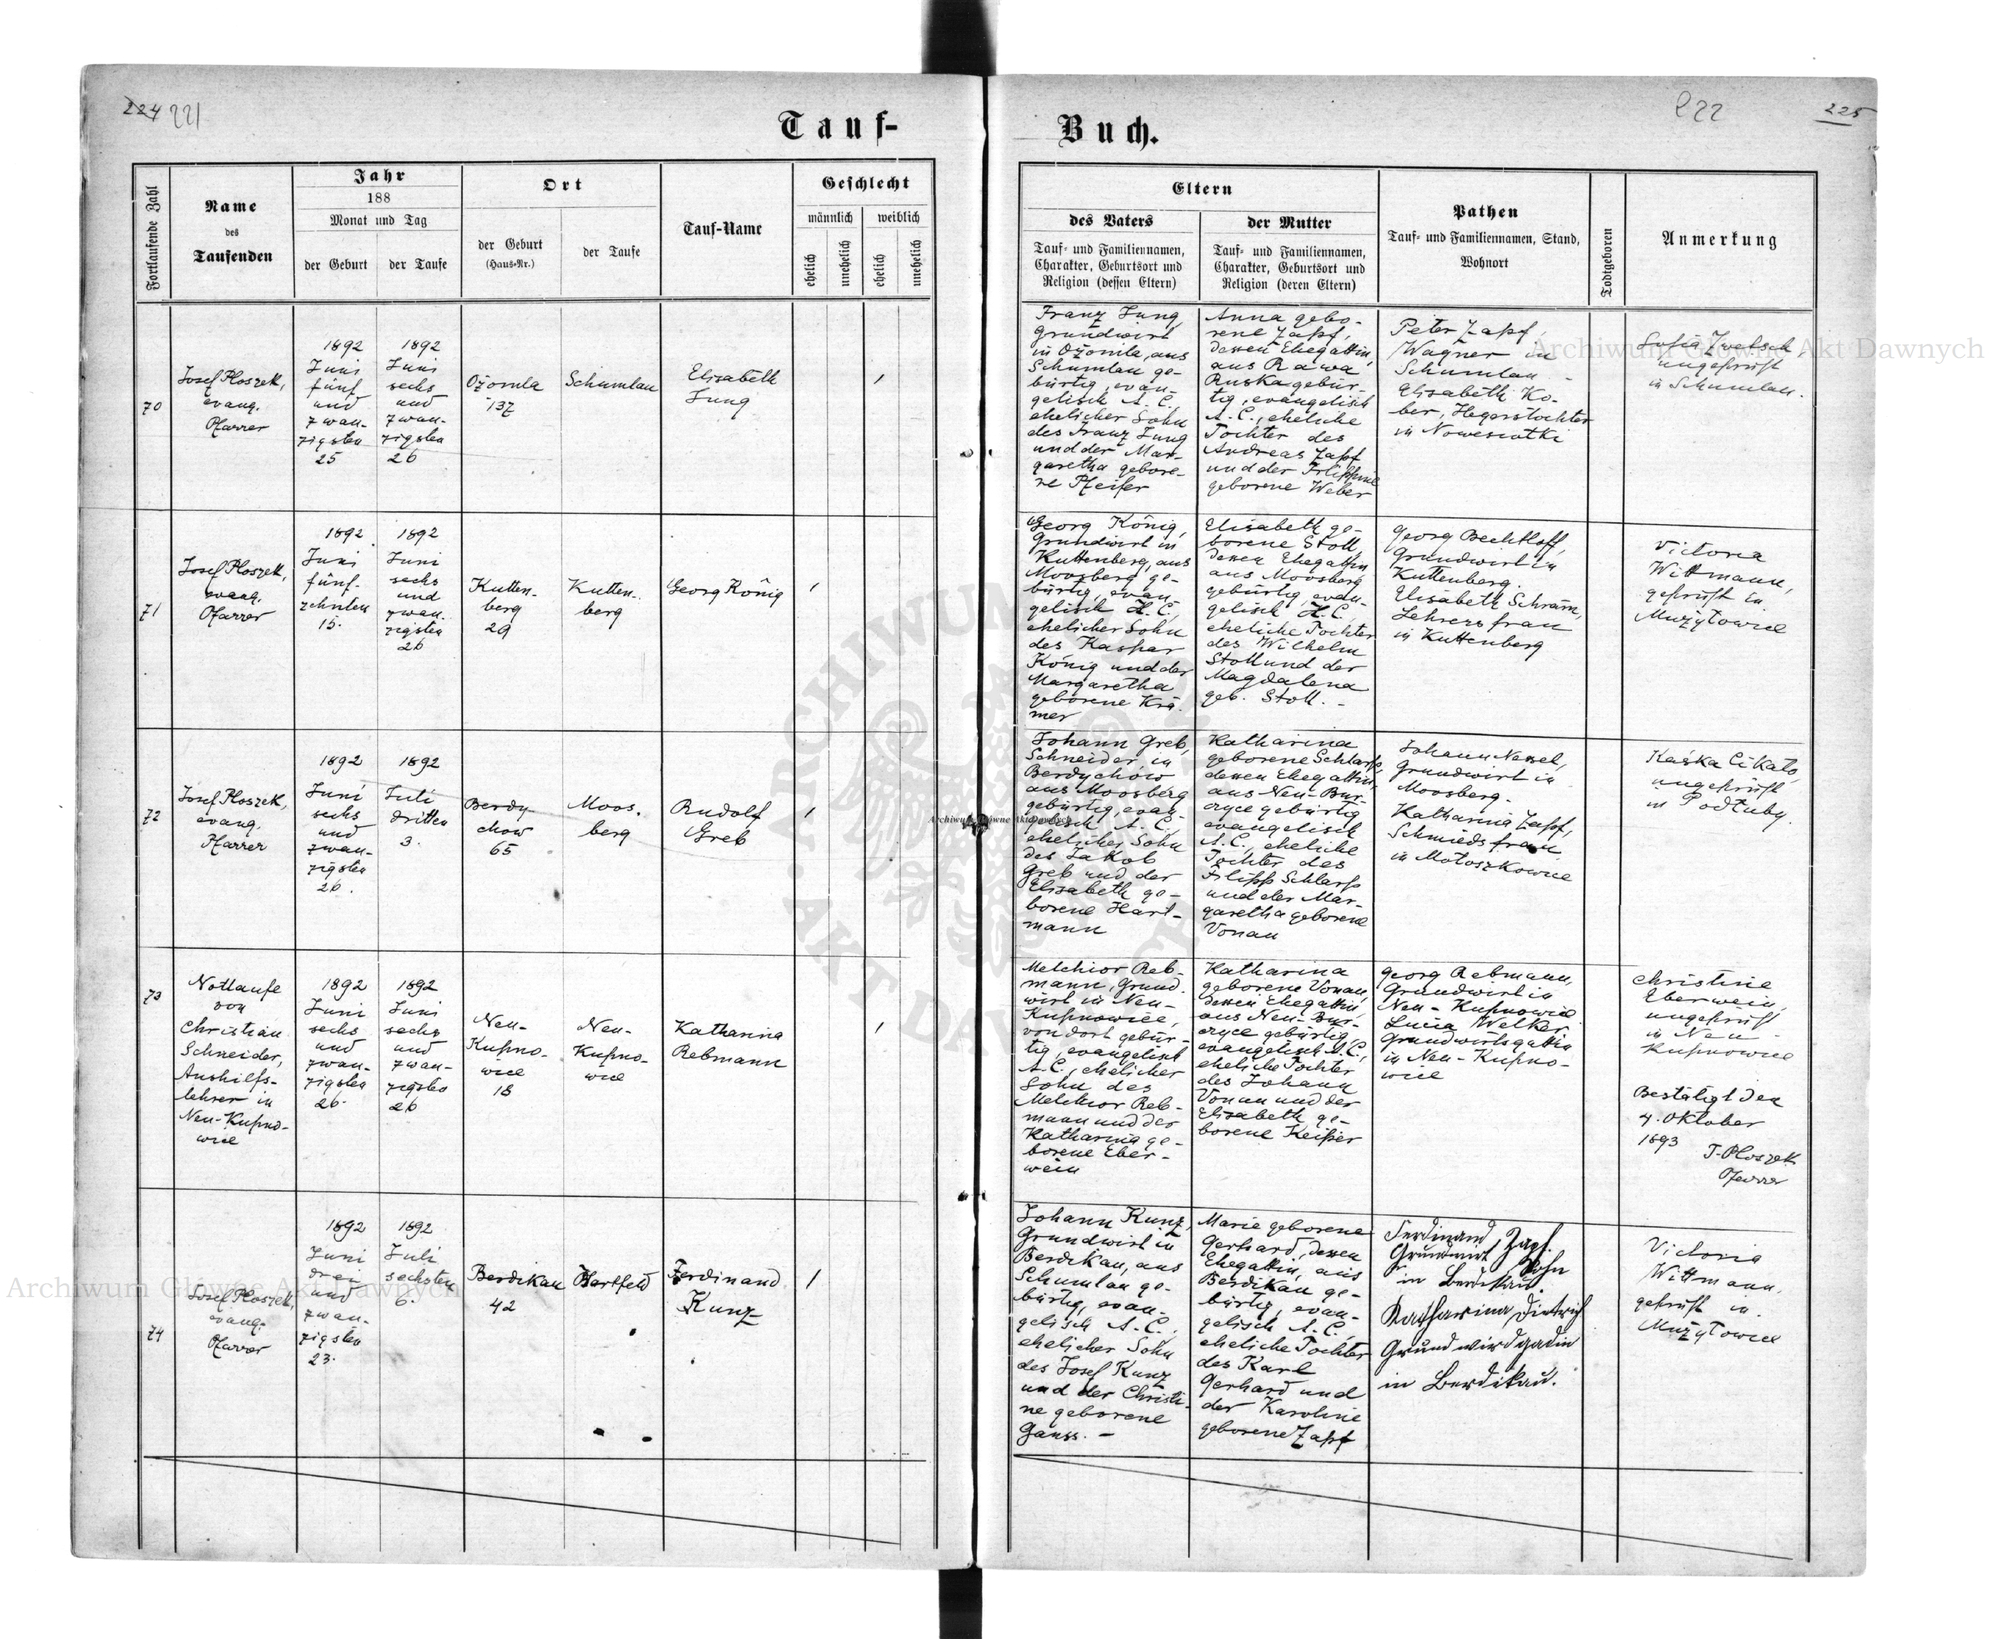 224 221
Tauf-
Buch.
222
225
Fortlaufende Zahl
Name
des
Taufenden
Jahr
188
Monat und Tag
der Geburt
der Taufe
Ort
der Geburt
(Haus-Nr.)
der Taufe
Tauf-Name
Geschlecht
männlich
weiblich
ehelich
unehelich
ehelich
unehelich
Eltern
des Vaters
Tauf- und Familiennamen,
Charakter, Geburtsort und
Religion (dessen Eltern)
der Mutter
Tauf- und Familiennamen,
Charakter, Geburtsort und
Religion (deren Eltern)
Pathen
Tauf- und Familiennamen, Stand,
Wohnort
Todtgeboren
Anmerkung
70
Josef Ploszek,
evang.
Pfarrer
1892
Juni
fünf
und
zwan-
zigsten
25
1892
Juni
sechs
und
zwan-
zigsten
26
Ożomla
137
Schumlau
Elisabeth
Jung
1
Franz Jung,
Grundwirt
in Ożomla, aus
Schumlau ge-
bürtig, evan-
gelisch A. C.
ehelicher Sohn
des Franz Jung
und der Mar-
garetha gebore-
ne Pfeifer
Anna gebo-
rene Zapf,
dessen Ehegattin,
aus Rawa
Ruska gebür-
tig, evangelisch
A. C., eheliche
Tochter des
Andreas Zapf
und der Filippine
geborene Weber
Peter Zapf,
Wagner in
Schumlau -
Elisabeth Ko-
ber, Hegerstochter
in Nowesiolki
Sofia Zwetsch,
ungeprüft
in Schumlau.
71
Josef Ploszek,
evang.
Pfarrer
1892
Juni
fünf-
zehnten
15.
1892
Juni
sechs
und
zwan-
zigsten
26
Kutten-
berg
29
Kutten-
berg
Georg König
1
Georg König,
Grundwirt in
Kuttenberg, aus
Moosberg ge-
bürtig, evan-
gelisch H. C.,
ehelicher Sohn
des Kaspar
König und der
Margaretha
geborene Krä-
mer
Elisabeth ge-
borene Stoll
dessen Ehegattin
aus Moosberg
gebürtig, evan-
gelisch H. C.
eheliche Tochter
des Wilhelm
Stoll und der
Magdalena
geb. Stoll. -
Georg Bechtloff,
Grundwirt in
Kuttenberg.
Elisabeth Schram,
Lehrersfrau
in Kuttenberg
Victoria
Wittmann,
geprüft in
Mużyłowice
72
Josef Ploszek,
evang.
Pfarrer
1892
Juni
sechs
und
zwan-
zigsten
26.
1892
Juli
dritten
3.
Berdy-
chow
65
Moos-
berg
Rudolf
Greb
1
Johann Greb,
Schneider in
Berdychów
aus Moosberg
gebürtig, evan-
gelisch A. C.
ehelicher Sohn
des Jakob
Greb und der
Elisabeth ge-
borene Hart-
mann
Katharina
geborene Schlarp,
dessen Ehegattin,
aus Neu-Bur-
czyce gebürtig
evangelisch
A. C., eheliche
Tochter des
Filipp Schlarp
und der Mar-
garetha geborene
Vonau
Johann Nessel,
Grundwirt in
Moosberg.
Katharina Zapf,
Schmiedsfrau
in Mołoszkowice
Kaśka Cikało,
ungeprüft
in Podłuby.
73
Nottaufe
von
Christian
Schneider,
Aushilfs-
lehrer in
Neu-Kupno-
wice
1892
Juni
sechs
und
zwan-
zigsten
26.
1892
Juni
sechs
und
zwan-
zigsten
26
Neu-
Kupno-
wice
18
Neu-
Kupno-
wice
Katharina
Rebmann
1
Melchior Reb-
mann, Grund-
wirt in Neu-
Kupnowice,
von dort gebür-
tig, evangelisch
A. C., ehelicher
Sohn des
Melchior Reb-
mann und der
Katharina ge-
borene Eber-
wein
Katharina
geborene Vonau,
dessen Ehegattin,
aus Neu-Bur-
czyce gebürtig,
evangelisch A. C.,
eheliche Tochter
des Johann
Vonau und der
Elisabeth ge-
borene Keiper
Georg Rebmann,
Grundwirt in
Neu-Kupnowice
Lucia Welker
Grundwirtsgattin
in Neu-Kupno-
wice
Christine
Eberwein,
ungeprüft
in Neu-
Kupnowice
Bestätigt den
4. Oktober
1893
J. Ploszek
Pfarrer
74
Josef Ploszek,
evang.
Pfarrer
1892
Juni
drei
und
zwan-
zigsten
23.
1892
Juli
sechsten
6.
Berdikau
42
Hartfeld
Ferdinand
Kunz
1
Johann Kunz,
Grundwirt in
Berdikau, aus
Schumlau ge-
bürtig, evan-
gelisch A. C.,
ehelicher Sohn
des Josef Kunz
und der Christi-
ne geborene
Ganss. -
Marie geborene
Gerhard, dessen
Ehegattin, aus
Berdikau ge-
bürtig, evan-
gelisch A. C.,
eheliche Tochter
des Karl
Gerhard und
der Karoline
geborene Zapf
Ferdinand Zapf.
Grundwirt Sohn
in Berdikau.
Katharina Dietrich
Grundwirdgadin
in Berdikau.
Victoria
Wittmann,
geprüft in
Mużyłowice
Archiwum Główne Akt Dawnych
Archiwum Główne Akt Dawnych
Archiwum Główne Akt Dawnych